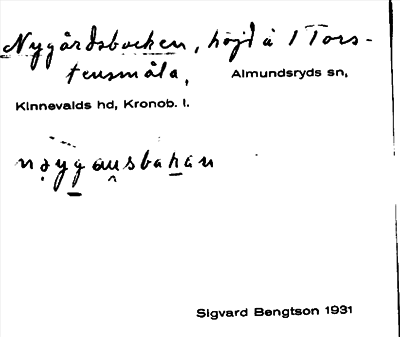 Nygårdsbacken, höjd å 1 Tors-
tensmåla, Almundsryds sn,
Kinnevalds hd, Kronob. l.
Sigvard Bengtson 1931